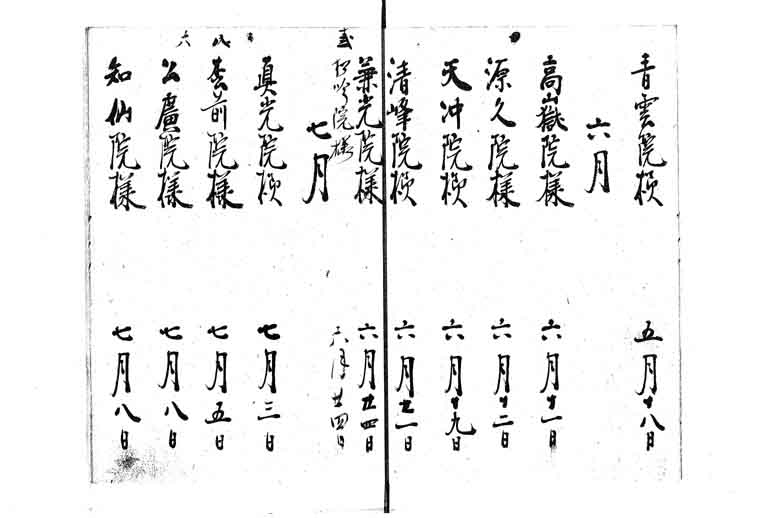 青雲院様 五月十八日
六月
高嶽院様 六月十一日
源久院様 六月十二日
天冲院様 六月十九日
清峰院様 六月廿一日
兼光院様 六月廿四日
院様 六月廿四日
七月
真光院様 七月三日
八
院様 七月五日
六
公廣院様 七月八日
知仙院様 七月八日